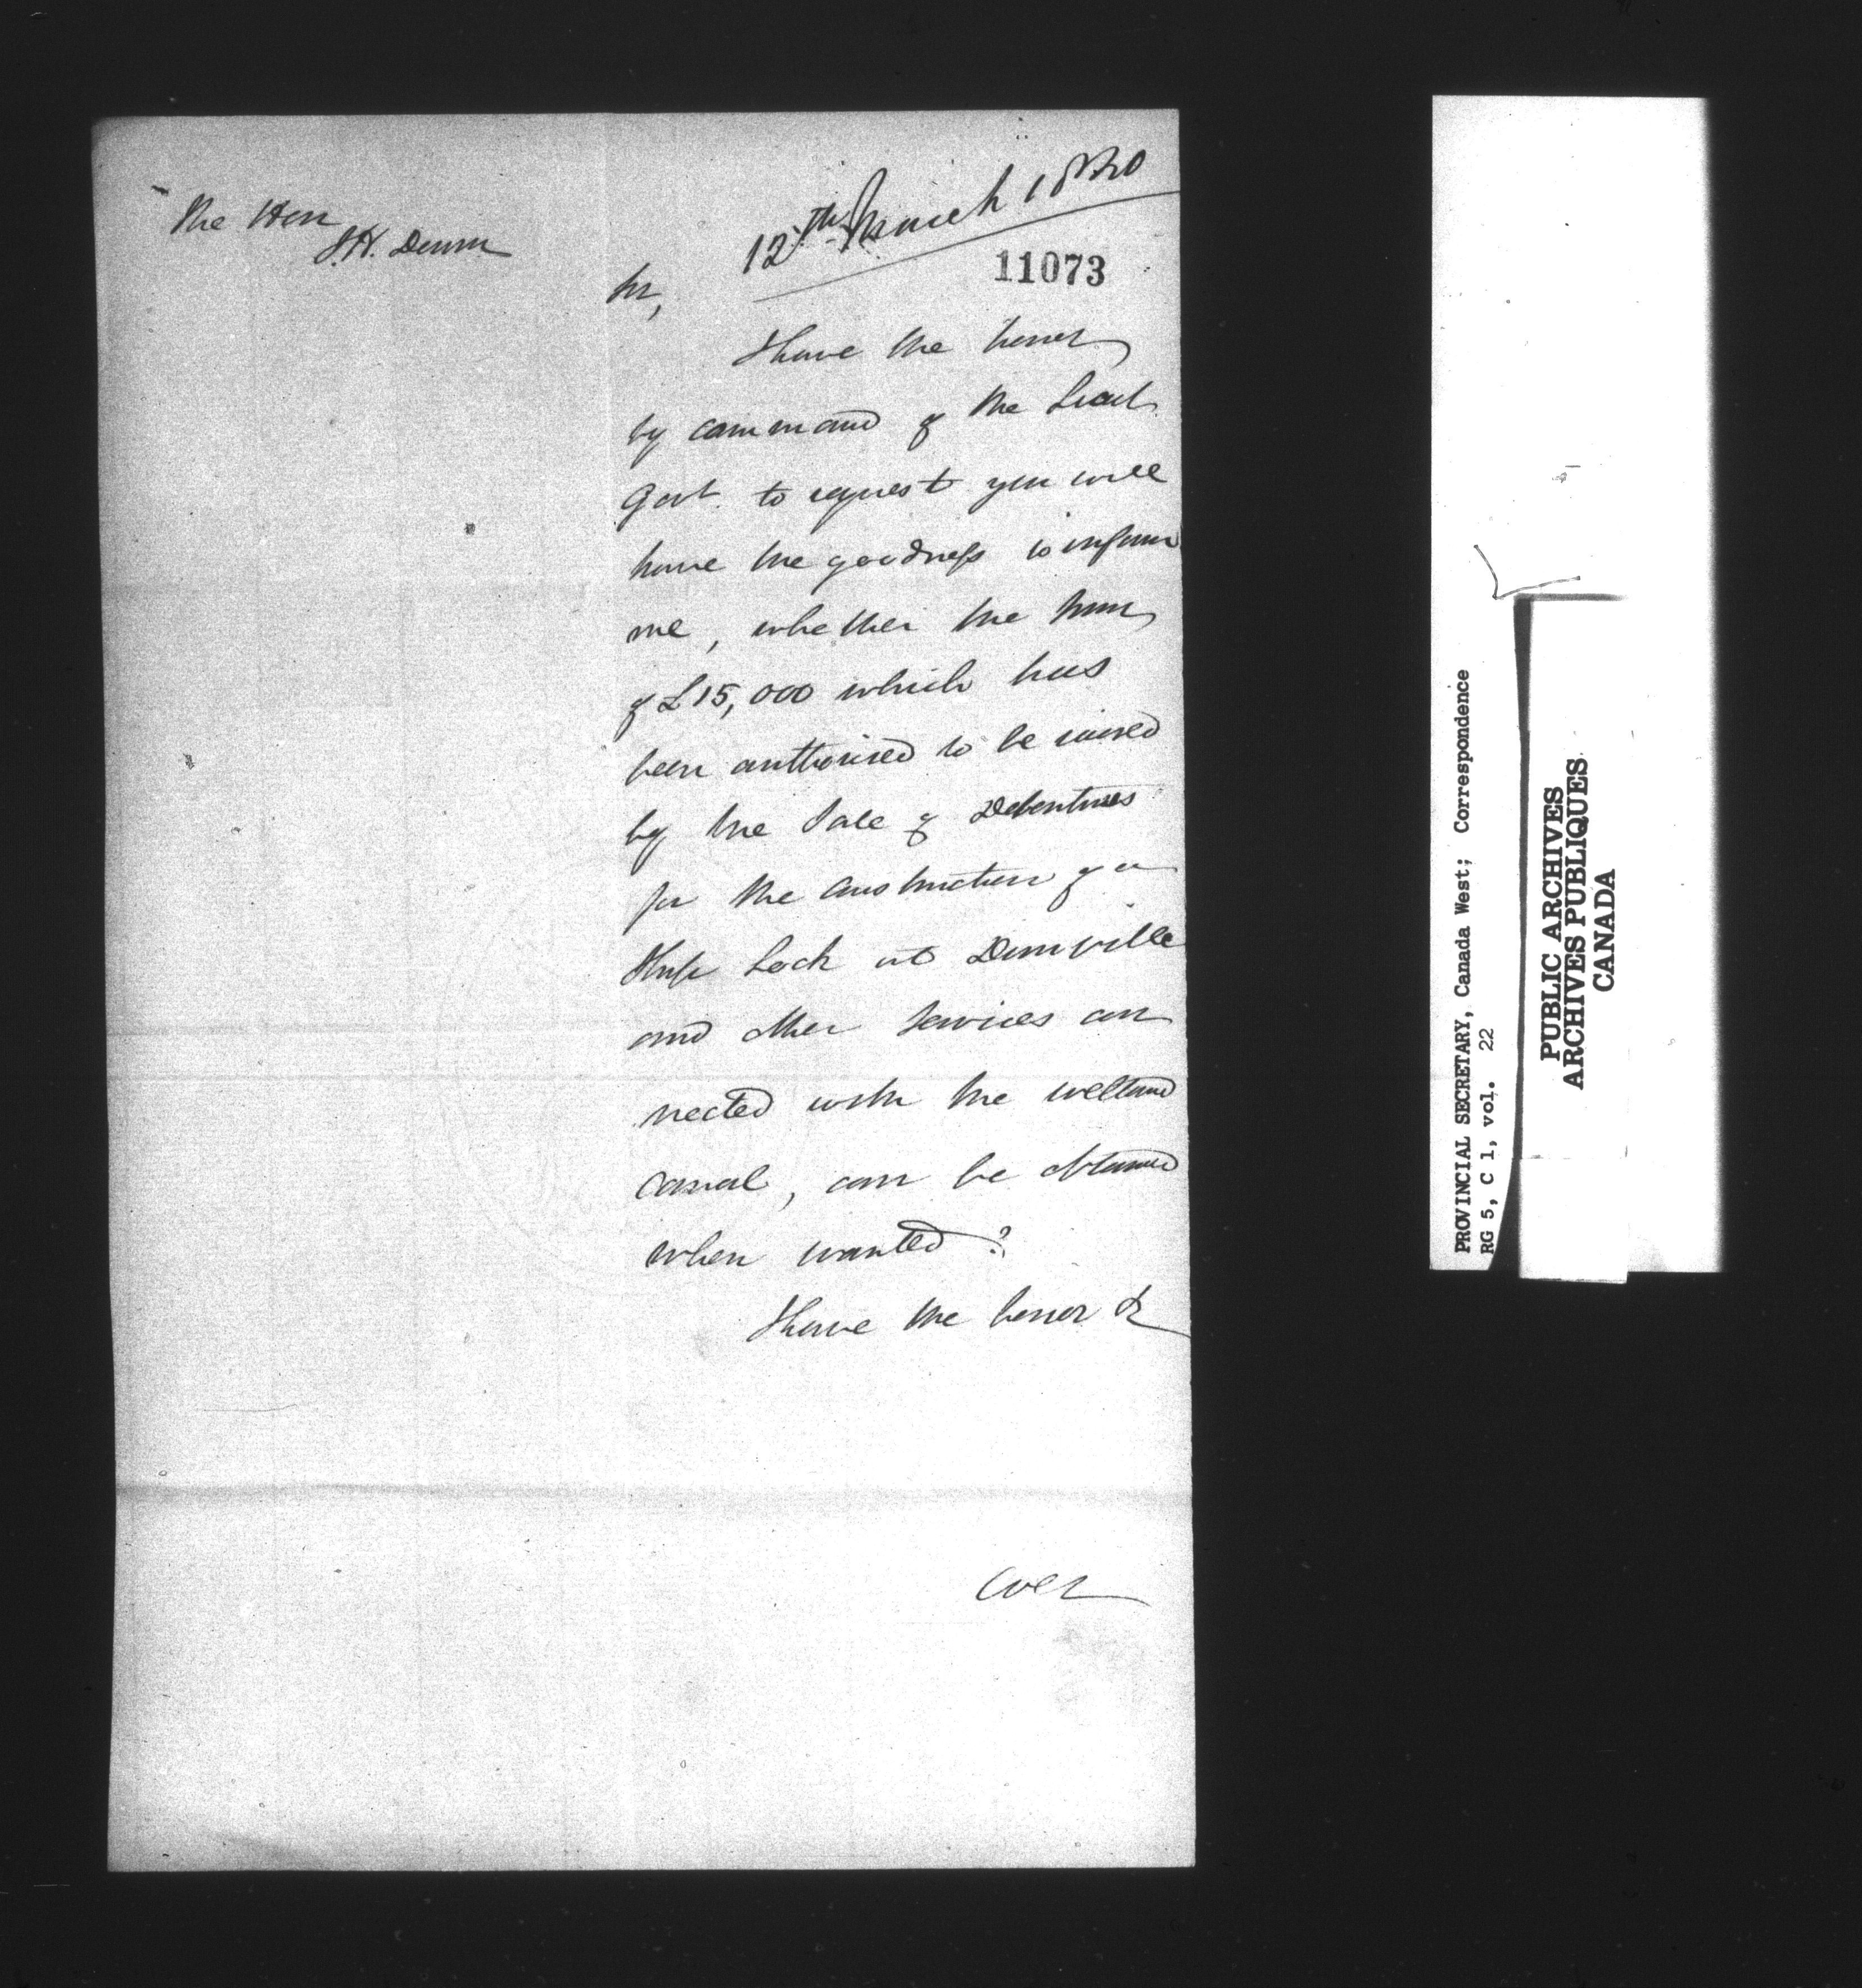 The Hon
J.H. Dunn
12th March 1840
11073
Sir,
I have the honor
by command of the Lieut
Govr. to request you will
have the goodness to inform
me, whether the sum
of £15,000 which has
been authorised to be raised
by the Sale of Debentures
for the construction of a
Ship Lock at Dunnville
and other Services con
nected with the Welland
Canal, can be obtained
when wanted?
I have the honor &
over
PROVINCIAL SECRETARY, Canada West; Correspondence
RG 5, C 1, vol. 22
PUBLIC ARCHIVES
ARCHIVES PUBLIQUES
CANADA